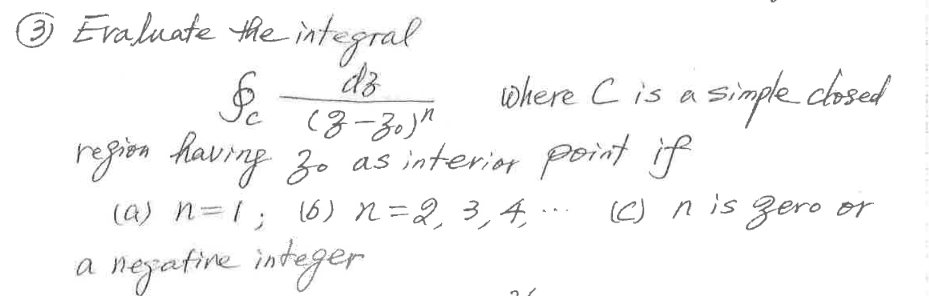 ③ Evaluate the integral
∮c dz/(z-z₀)ⁿ where C is a simple closed
region having z₀ as interior point if
(a) n=1; (b) n=2, 3, 4, ... (c) n is zero or
a negative integer